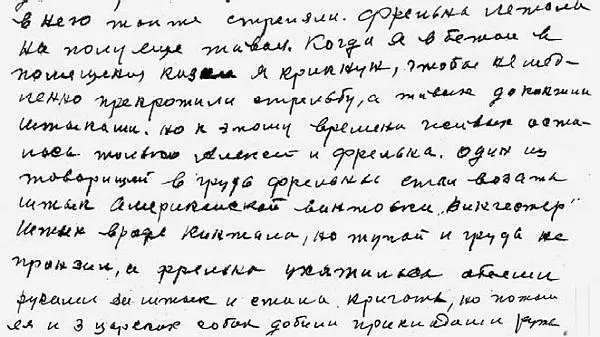 в него тоже стреляли. Фрельна лежала
на полу еще живая. Когда я вбежал в
помещения казни я крикнул, чтобы немед-
ленно прекротили стрельбу, а живых докончили
штыками. но к этому времени в живых оста-
лось только Алексей и Фрельна. один из
товарищей в грудь фрельны стал вазать
штык Американской винтовки „Винчестер"
Штык вроде кинжала, но тупой и грудь не
пронзил, а фрельна ухажилась обеими
руками за штык и стала кричать, но потом
ее и 3 царских собак добили прикладами ружь